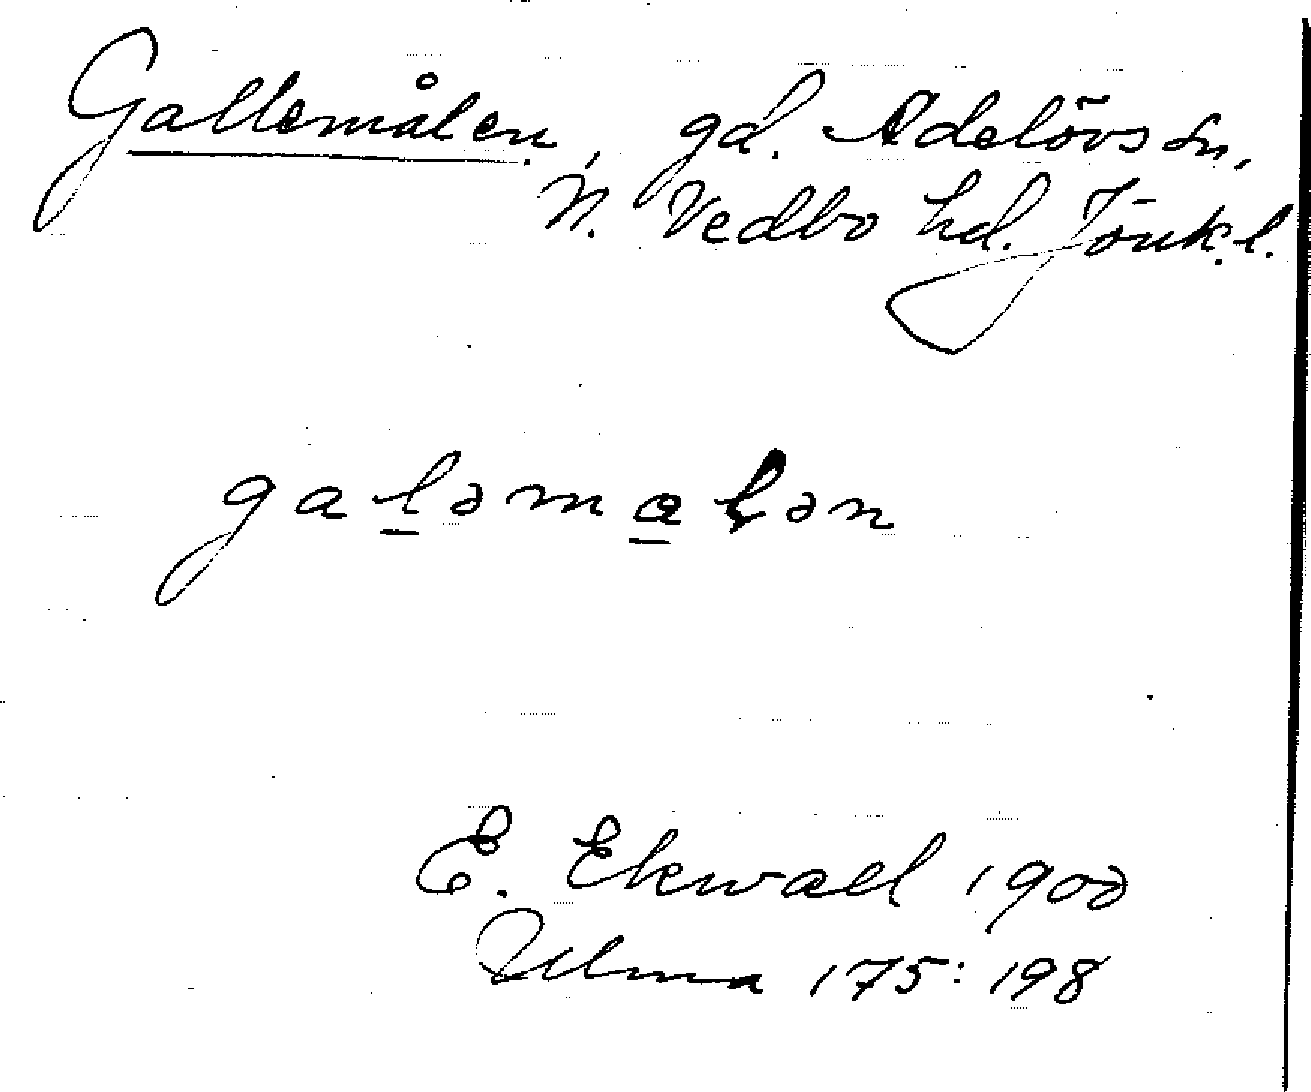 Gallemålen, gd. Adelövs sn,
N. Vedbo hd. Jönk. l.
galəmaɭən
E. Ekwall 1900
Ulma 175: 198